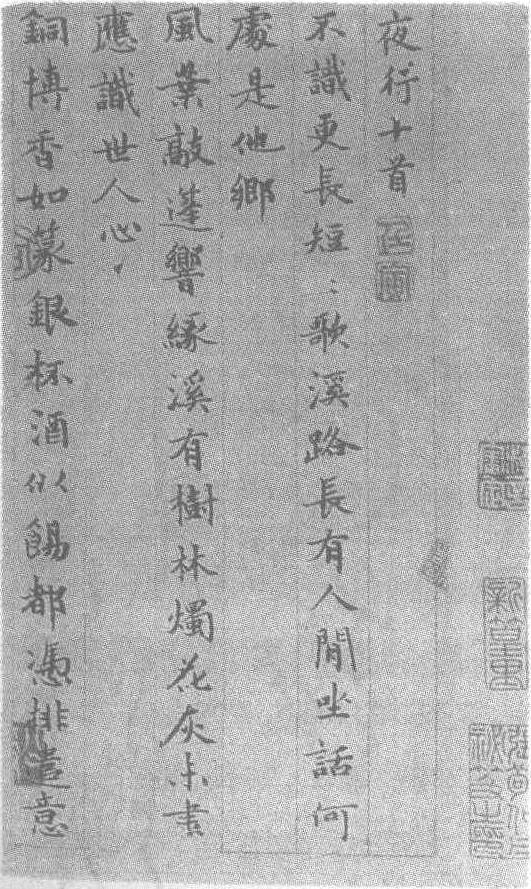 夜行十首
不識更長短〻歌溪路長有人閒坐話何
處是他鄉
風葉敲蓬響緣溪有樹林燭花灰未書
應識世人心
銅博香如篆銀杯酒似餳都憑排遣意